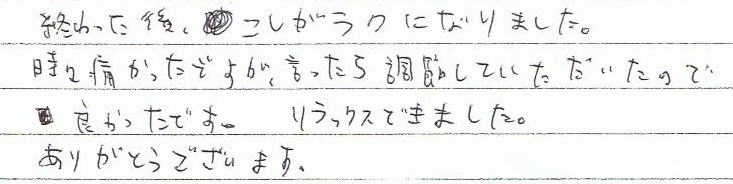 終わった後、こしがラクになりました。
時々痛かったですが、言ったら調節していただいたので
良かったです。 リラックスできました。
ありがとうございます。